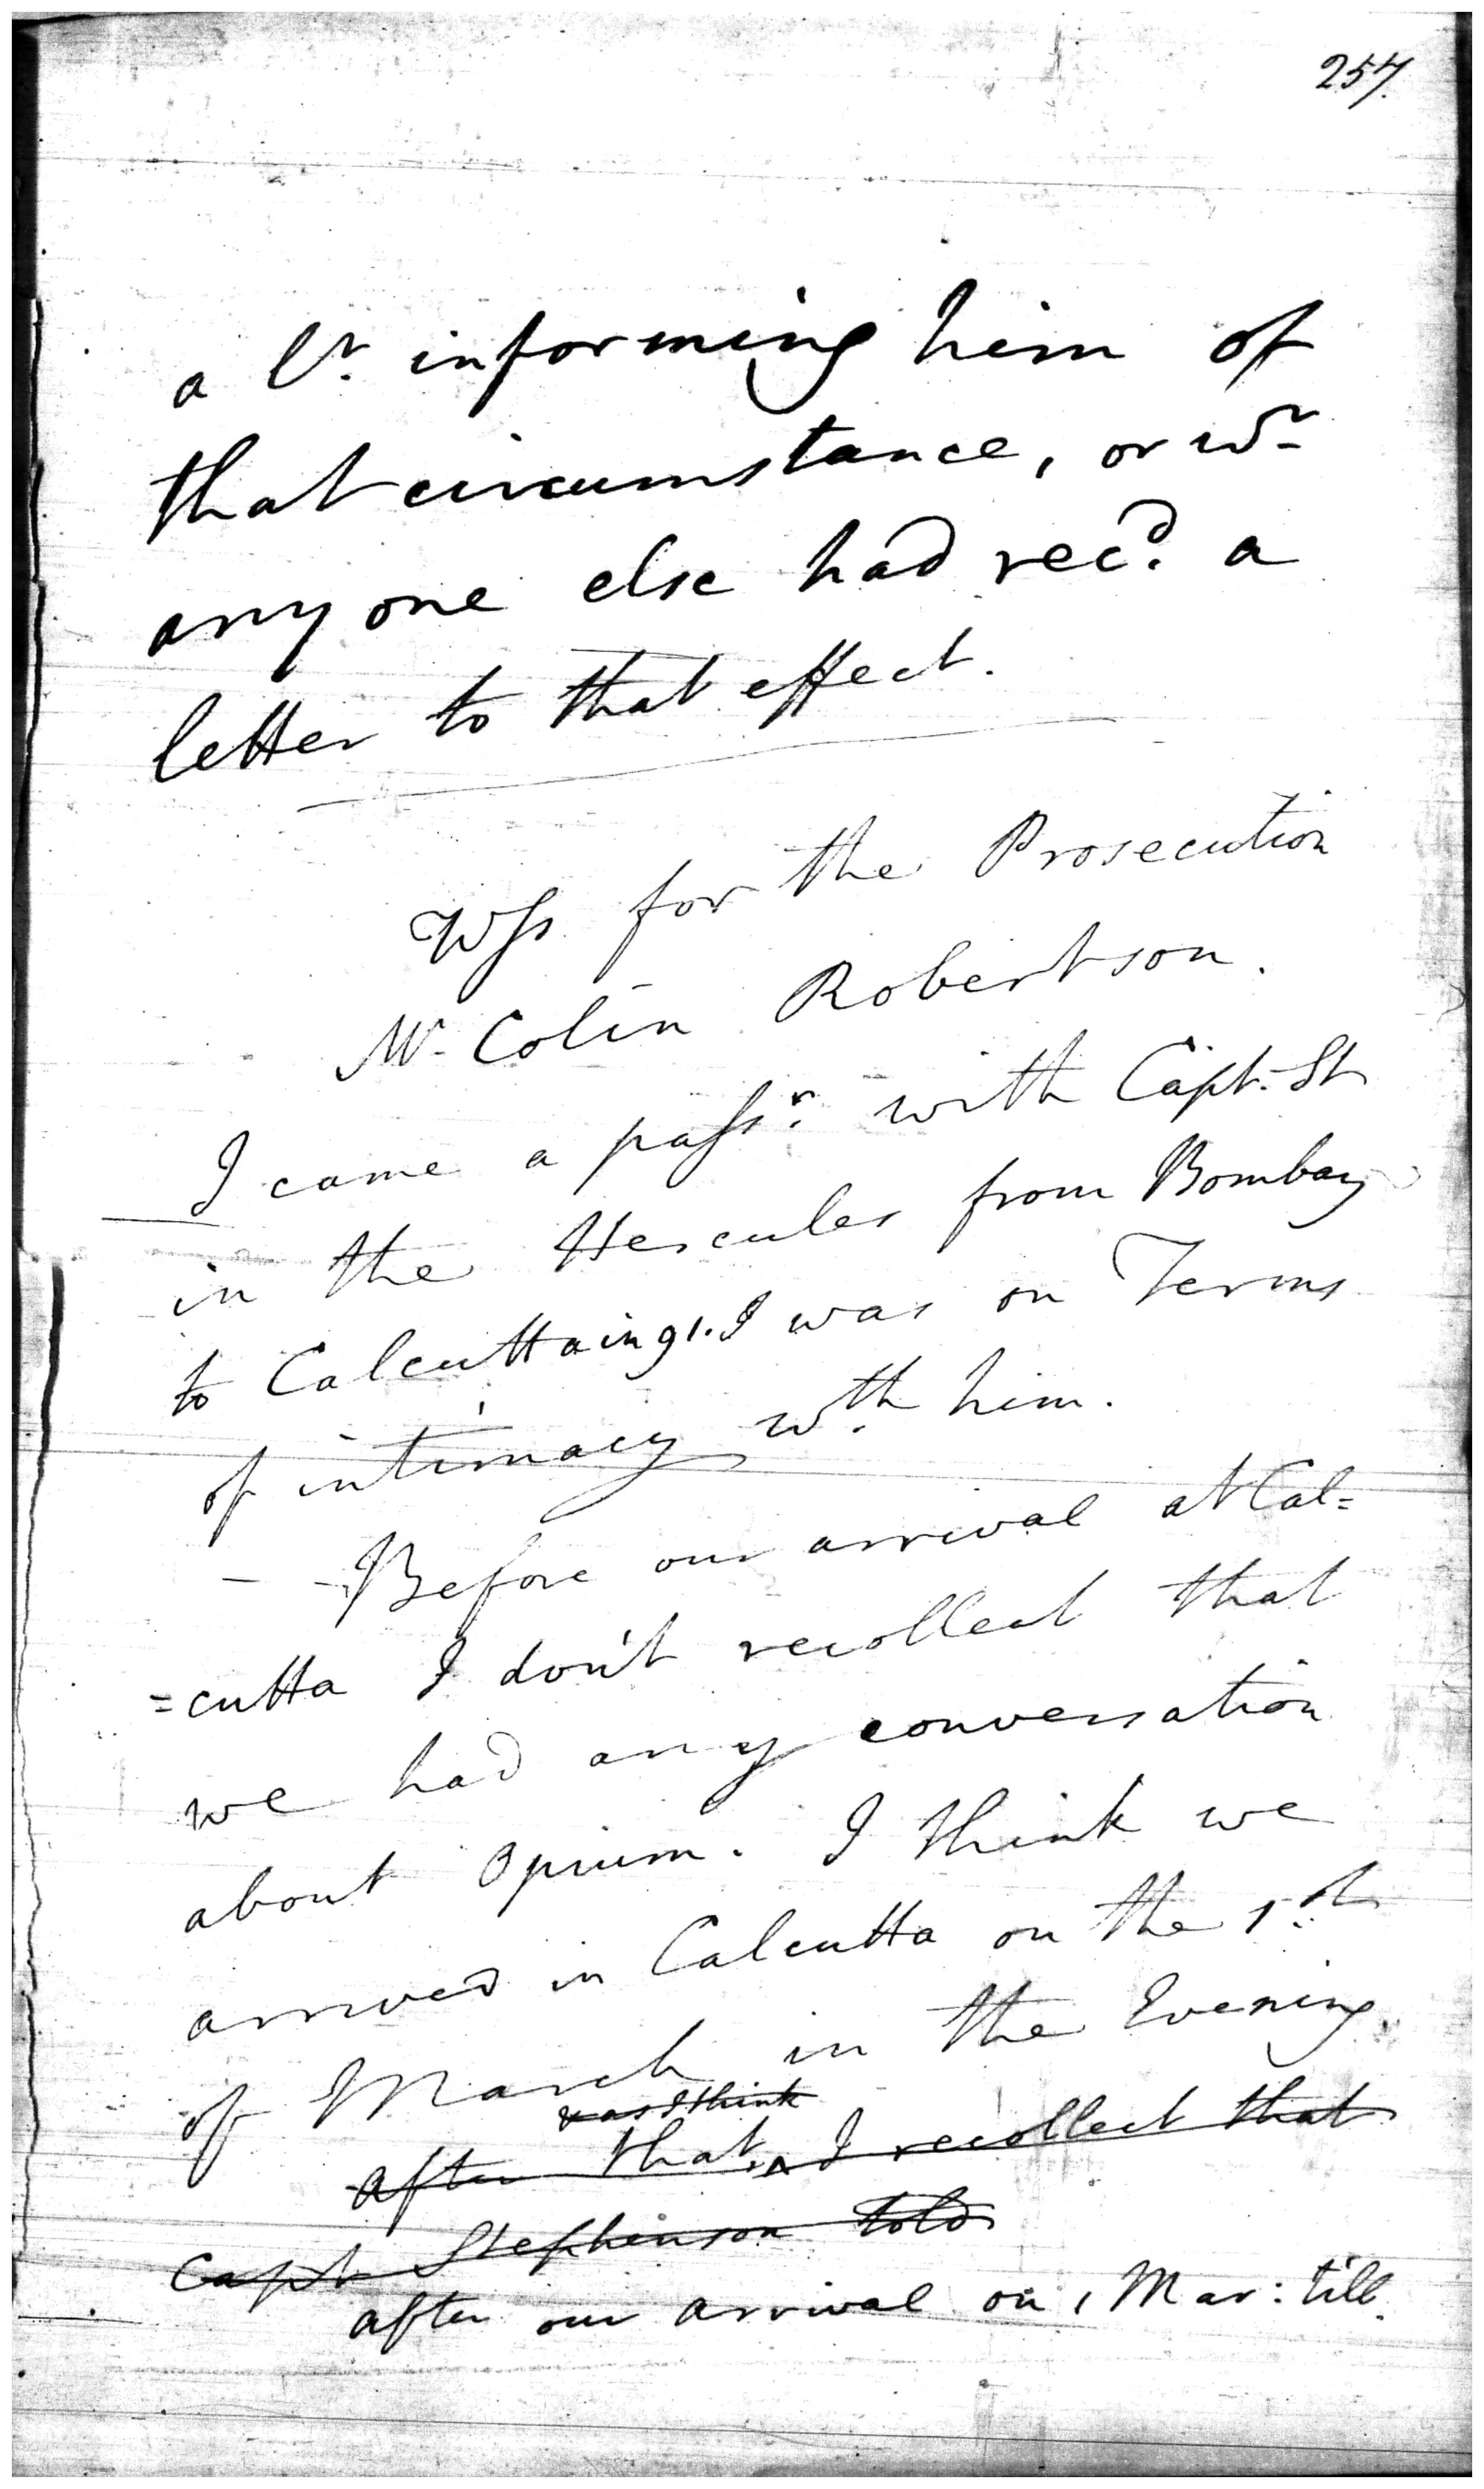 257.
a lr. informing him of
that circumstance, or wr
any one else had recd. a
letter to that effect.
Wss for the Prosecution
Mr Colin Robertson.
I came a passr. with Capt. St
in the Hercules from Bombay
to Calcutta in 91. I was on Terms
of intimacy wth him.
- - Before our arrival at Cal=
=cutta I don't recollect that
we had any conversation
about Opium. I think we
arrived in Calcutta on the 1st
of March in the Evening.
was I think
after that ^ I recollect that
Capt Stephenson told
after our arrival on 1 Mar: till